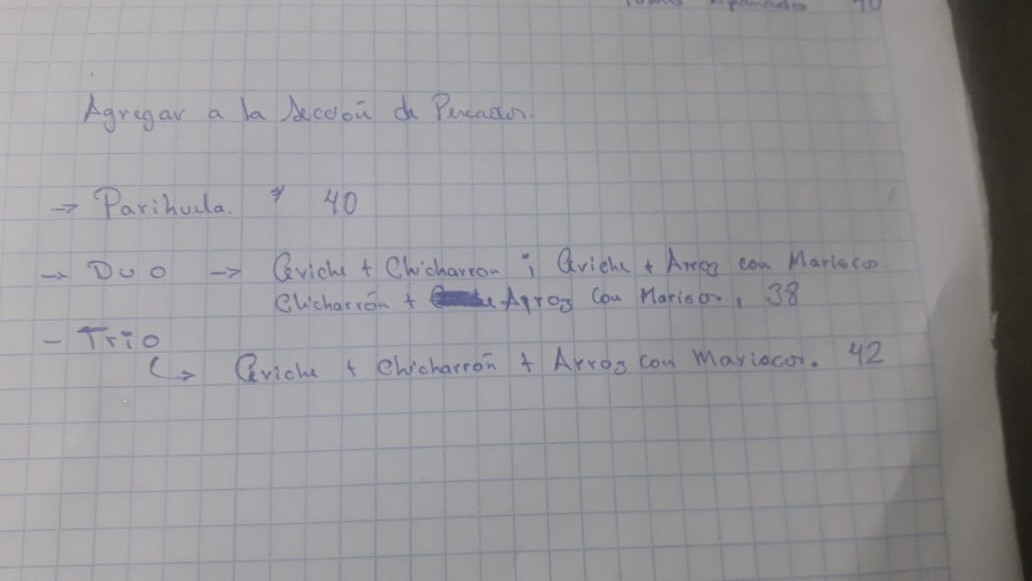 apanados 40
Agregar a la Sección de Pescados.
→ Parihuela. 40
→ Duo → Ceviche + Chicharron ; Ceviche + Arroz con Mariscos.
Chicharrón + Arroz Con Mariscos, 38
- Trio
↳ Ceviche + Chicharrón + Arroz con Mariscos. 42